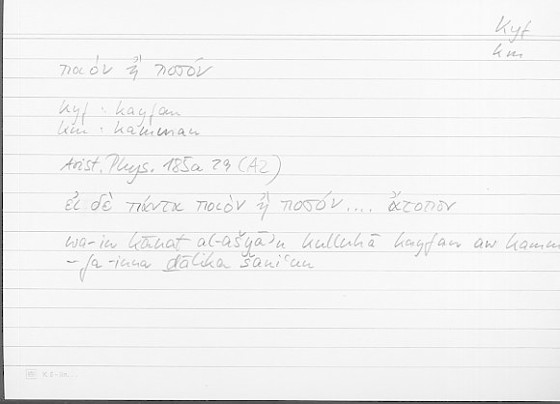 kyf
km
ποιόν ἢ ποσόν
kyf : kayfan
km : kamman
Arist. Phys. 185a 29 (A2)
εἰ δὲ πάντα ποιὸν ἢ ποσόν.... ἄτοπον
wa-in kānat al-ašyāʾu kulluhā kayfan aw kamm
- fa-inna ḏālika šanīʿun